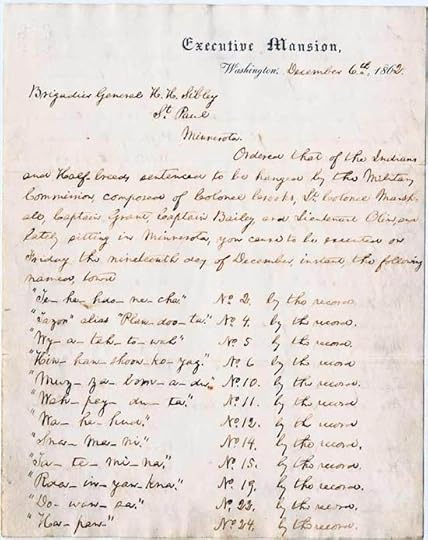 Executive Mansion,
Washington, December 6th, 1862.
Brigadier General H. H. Sibley
St. Paul
Minnesota.
Ordered that of the Indians
and Half-breeds sentenced to be hanged by the Military
Commission, composed of Colonel Crooks, Lt. Colonel Marsh-
all, Captain Grant, Captain Bailey and Lieutenant Olin, and
lately sitting in Minnesota, you cause to be executed on
Friday the nineteenth day of December, instant, the following
named, towit
"Te-he-hdo-ne-cha." No. 2. by the record.
"Tazoo" alias "Plan-doo-ta." No. 4. by the record.
"Wy-a-tah-to-wah" No. 5 by the record.
"Hin-han-shoon-ko-yag." No. 6 by the record.
"Muz-za-bom-a-du." No. 10. by the record.
"Wah-pey-du-ta." No. 11. by the record.
"Wa-he-hud." No. 12. by the record.
"Sna-ma-ni." No. 14. by the record.
"Ta-te-mi-na." No. 15. by the record.
"Rda-in-yan-kna." No. 19. by the record.
"Do-wan-sa." No. 22. by the record.
"Ha-pan." No. 24. by the record.